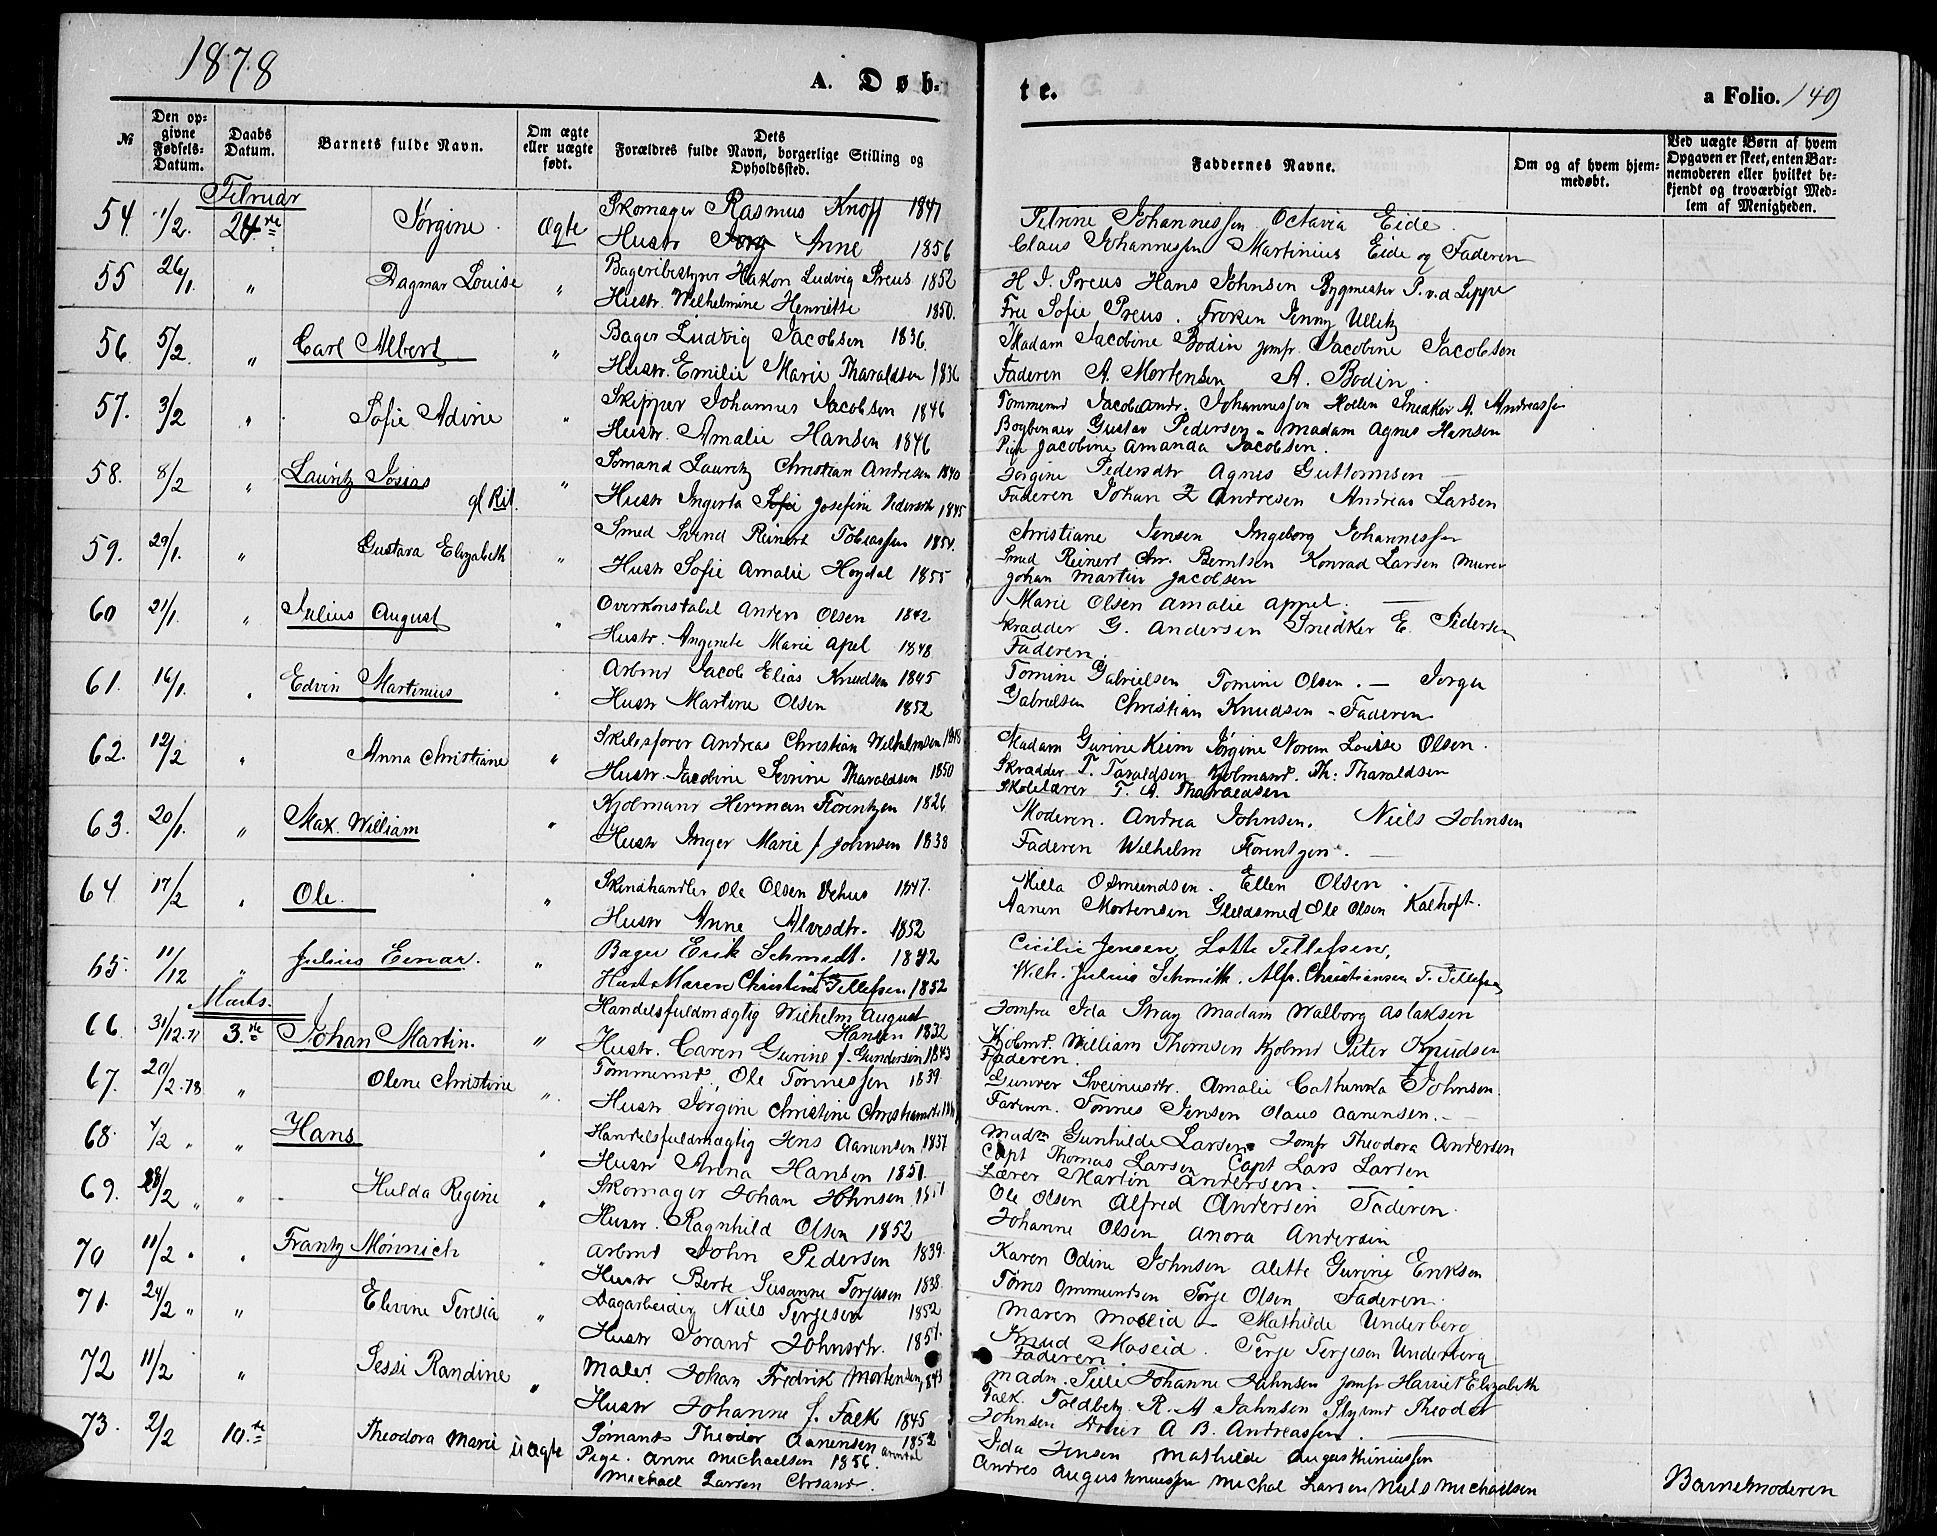 1878
A. Døb-
te.
a Folio. 149
№
Den opgivne Fødsels-Datum.
Daabs Datum.
Barnets fulde Navn.
Om ægte eller uægte født.
Dets Forældres fulde Navn, borgerlige Stilling og Opholdssted.
Faddernes Navne.
Om og af hvem hjemmedøbt.
Ved uægte Børn af hvem Opgaven er skeet, enten Barnemoderen eller hvilket bekjendt og troværdigt Medlem af Menigheden.
Februar
54. 1/2. 24de Jørgine. Ægte Skomager Rasmus Knoff 1847
Hustr Anne 1856
Petrine Johannessen Octavia Eide
Claus Johannessen Martinius Eide og Faderen
55 26/1. " Dagmar Louise " Bageribestyrer Hakon Ludvig Preus 1852
Hustr. Wilhelmine Henriette 1850.
H. J. Preus Hans Johnsen Bygmester P. v. d Lippe
Fru Sofie Preus. Frøken Jenny Ullitz
56. 5/2 " Carl Albert " Bager Ludvig Jacobsen 1836
Hustr. Emilie Marie Tharaldsen 1836
Madam Jacobine Bodin jomfr. Jacobine Jacobsen
Faderen A. Mortensen A. Bodin.
57. 3/2 " Sofie Adine " Skipper Johannes Jacobsen 1846
Hustr. Amalie Hansen 1846
Tømmermd Jacob Andr. Johannessen Hollen Snedker A. Andreassen
Bogbinder Gustav Pedersen - Madam Agnes Hansen
Pige Jacobine Amanda Jacobsen.
58. 8/2 " Lauritz Josias " Sømand Lauritz Christian Andresen 1840
gl Rit.
Hustr Ingerta Sofie Josefine Pedersdtr 1845
Jørgine Pedersdtr Agnes Guttormsen
Faderen Johan Z Andresen Andreas Larsen
59. 29/1. " Gustava Elizabeth " Smed Svend Reinert Tobiassen 1854.
Hustr Sofie Amalie Høydal 1855
Christiane Jensen Ingeborg Johannessen
Smed Reinert Chr. Berntsen Konrad Larsen Murer
Johan Martin Jacobsen
60 21/1. " Julius August " Overkonstabel Anders Olsen 1842
Hustr. Angenete Marie Apel 1848
Marie Olsen Amalie Appel. —
Skrædder G. Andersen Snedker E. Pedersen
Faderen.
61. 16/1. " Edvin Martinius " Arbmd Jacob Elias Knudsen 1845
Hustr Martine Olsen 1852
Tomine Gabrielsen Tomine Olsen. — Jørgen
Gabrielsen Christian Knudsen - Faderen
62. 12/2 " Anna Christiane " Skibsfører Andreas Christian Wilhelmsen 1848
Hustr. Jacobine Severine Tharaldsen 1850
Madam Gurine Keim Jørgine Norem Louise Olsen.
Skrædder T. Taraldsen Kjølmand. Th: Tharaldsen
Skolelærer T. A. Tharaldsen
63. 20/1. " Max. William " Kjølmand Herman Florentzen 1826
Hustr Inger Marie f Johnsen 1838
Moderen. Andrea Johnsen. Niels Johnsen
Faderen Wilhelm Florentzen. —
64 17/2 " Ole. " Skindhandler Ole Olsen Vehus 1847.
Hustr Anne Alvesdtr. 1852
Milla Osmundsen. Ellen Olsen.
Aanen Mortensen Guldsmed Ole Olsen Kalhoft.
65. 11/12 " Julius Einar. " Bager Erik Schmidt. 1842
Hustr Maren Christine Tellefsen 1852
Cicilie Jensen, Lotte Tellefsen,
Wilh. Julius Schmidt. Alfr. Christiansen T. Tellefsen
Marts.
66 31/12.77 3.de Johan Martin. " Handelsfuldmægtig Wilhelm August Hansen 1832
Hustr. Caren Gurine f. Gundersen 1843
Jomfru Ida Stray Madam Walborg Aslaksen
Kjølmd. William Thomsen Kjølmd Peter Knudsen
Faderen
67. 20/2.78 " Olene Christine " Tømmermd. Ole Tønnessen 1839
Hustr Jørgine Christine
Gunvor Sveinusdtr. Amalie Cathinka Johnsen.
Faderen. Tønnes Jensen Olaus Aanensen. —
68. 4/2 " " Hans " Handelsfuldmægtig Jens Aanensen 1837
Hustr Anna Hansen 1850.
Madm Gunhilde Larsen Jomfr Theodora Andersen
Capt Thomas Larsen Capt Lars Larsen
Lærer Martin Andersen. —
69. 28/2 " " Hulda Regine " Skomager Johan Johnsen 1851
Hustr. Ragnhild Olsen 1852
Ole Olsen Alfred Andersen Faderen.
Johanne Olsen Anora Andersen
70 11/2 " " Frantz Mønnich " Arbmd John Pedersen 1839
Hustr Berte Susanne Torjesen 1838
Karen Odine Johnsen Alette Gurine Eriksen
Tønes Ommundsen Torje Olsen Faderen.
71. 24/2 " " Elevine Teresia " Dagarbeider Niels Terjesen 1852
Hustr Torand Johnsdtr. 1851.
Maren Moseid — Mathilde Underberg
Knud Moseid. Terje Terjesen Underberg
Faderen.
72 11/2 " Jessi Randine " Maler. Johan Fredrik Mortensen, 1843
Hustr Johanne f. Falk 1845
Madm. Tili Johanne Jahnsen Jomfr Harriet Elizabeth
Falk. Toldbetj. R. A Jahnsen Styrmd Theodor
Johnsen A B. Andreassen.
73. 2/2 10.de Theodora Marie uægte Sømand Theodor Aanensen 1852
Pige. Anne Michaelsen 1856. Arendal
Michael Larsen Chrsand.
Ida Jensen Mathilde Augusthiniussen
Andres Augustinussen Michal Larsen Niels Michaelsen
Barnemoderen